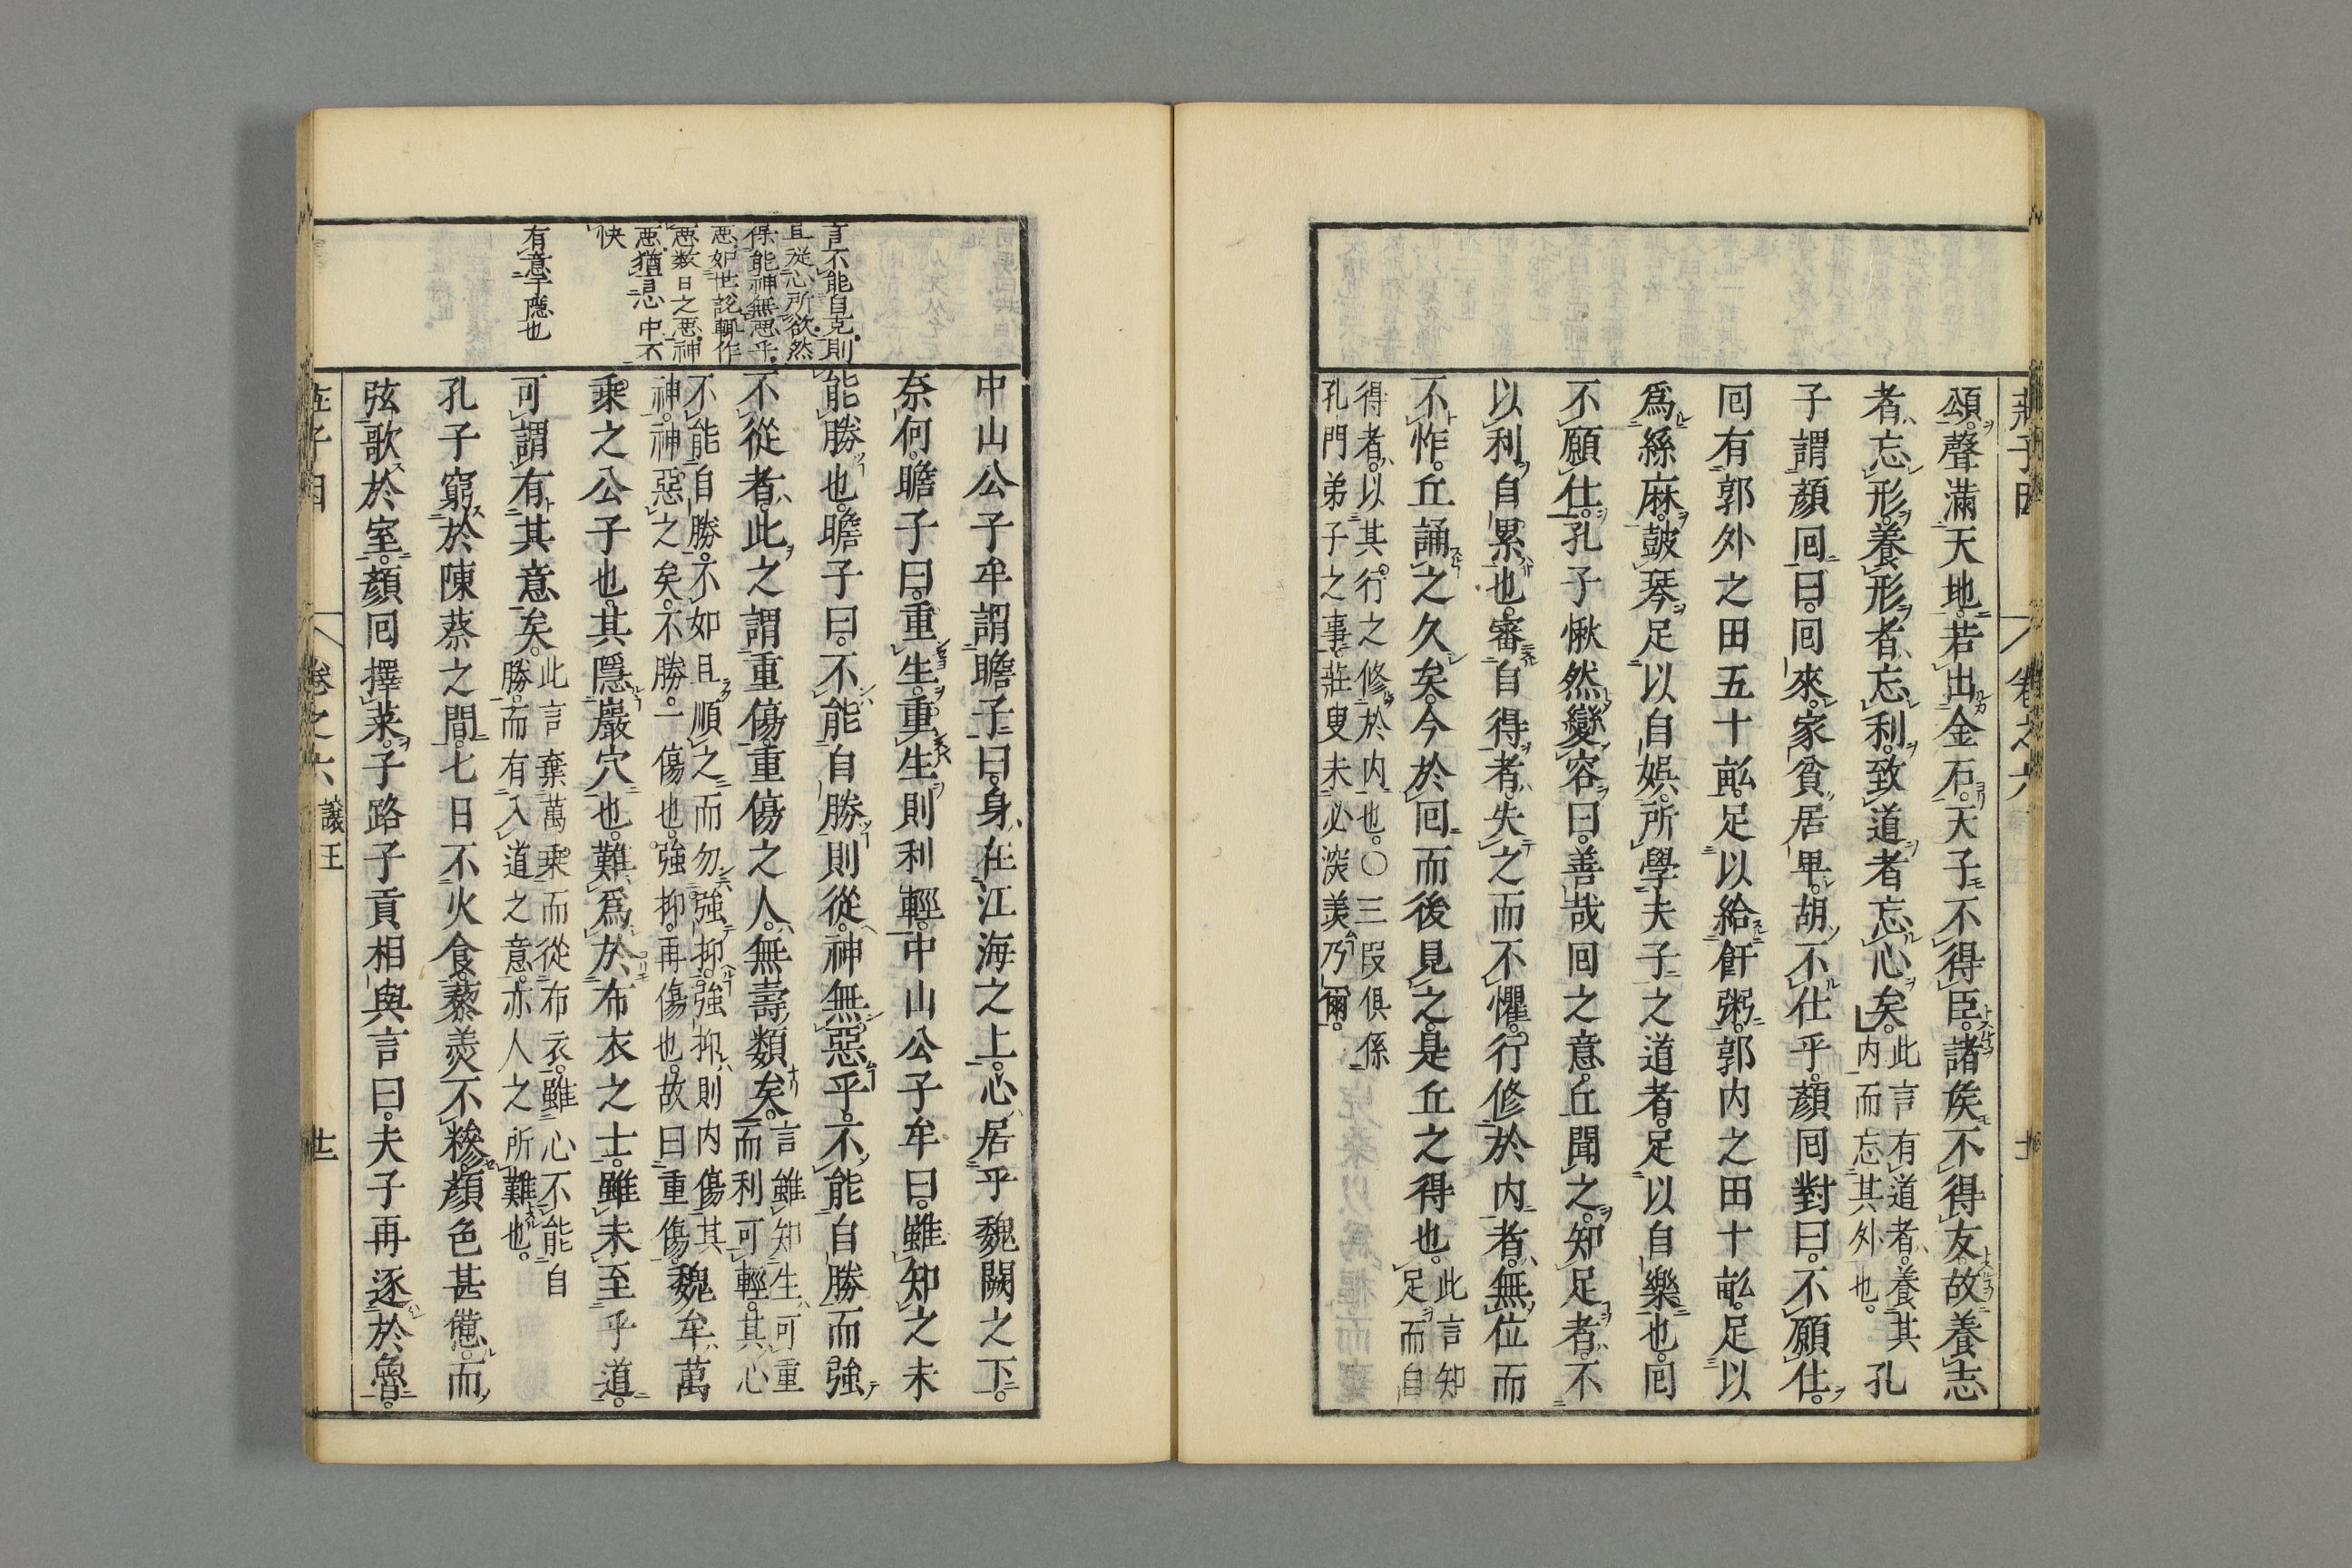 頌。聲滿天地。若出金石。天子不得臣。諸矦不得友。故養志
者忘形。養形者忘利。致道者忘心矣。此言有道者。養其
内而忘其外也。孔
子謂顏囘曰。囘來。家貧居卑。胡不仕乎。顏囘對曰。不願仕。
囘有郭外之田五十畝。足以給飦粥。郭内之田十畝。足以
爲絲麻。鼓琴足以自娛。所學夫子之道者。足以自樂也。囘
不願仕。孔子愀然變容曰。善哉囘之意。丘聞之。知足者。不
以利自累也。審自得者。失之而不懼。行修於内者。無位而
不怍。丘誦之久矣。今於囘而後見之。是丘之得也。此言知
足而自
得者。以其行之修於内也。〇三段俱係
孔門弟子之事。莊叟未必深羡乃爾。
中山公子牟謂瞻子曰。身在江海之上。心居乎魏闕之下。
奈何。瞻子曰。重生。重生則利輕。中山公子牟曰。雖知之未
能勝也。瞻子曰。不能自勝則從。神無惡乎。不能自勝而強
不從者。此之謂重傷。重傷之人。無壽類矣。言雖知生可重
而利可輕。其心
不能自勝。不如且順之而勿強抑。強抑則内傷其
神。神惡之矣。不勝。一傷也。強抑。再傷也。故曰重傷。魏牟萬
乘之公子也。其隱巖穴也。難爲於布衣之士。雖未至乎道。
可謂有其意矣。此言棄萬乘而從布衣。雖心不能自
勝。而有入道之意。亦人之所難也。
孔子窮於陳蔡之間。七日不火食。藜羡不糝。顏色甚憊。而
弦歌於室。顏囘擇菜。子路子貢相與言曰。夫子再逐於魯。
言不能自克。則
且從心所欲。然
得能神無惡乎。
惡如世說輒作
惡數日之惡。神
惡猶言心中不
快
有意于隱也
卷之六
讓王
卷之六